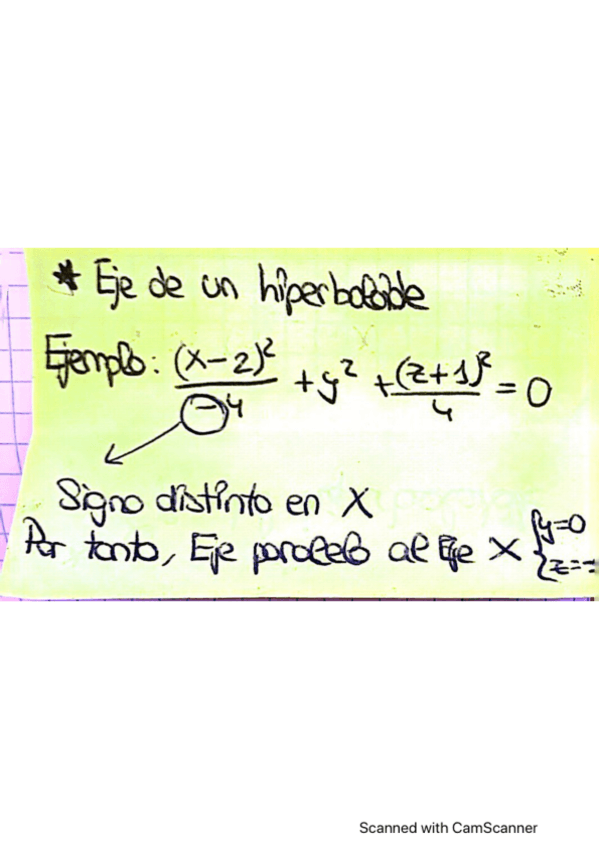 * Eje de un hiperboloide
Ejemplo: (x-2)²/-4 + y² + (z+1)²/4 = 0
Signo distinto en X
Por tanto, Eje paralelo al Eje X {y=0
{z=-
Scanned with CamScanner